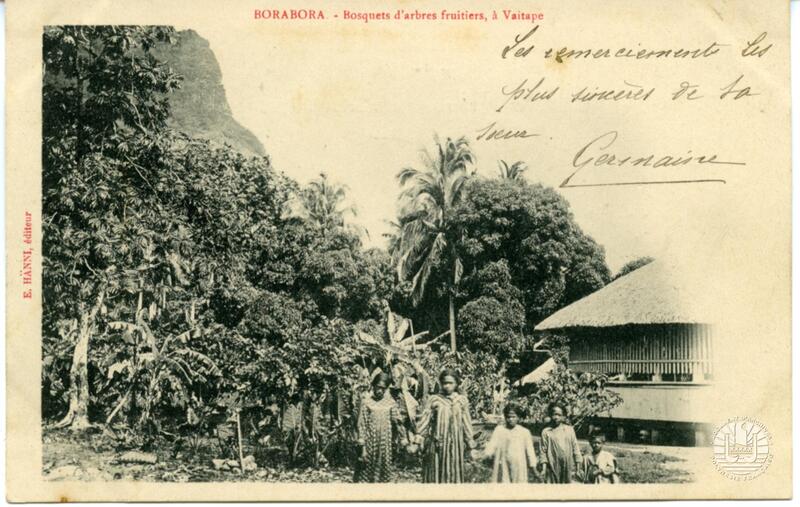 BORABORA. - Bosquets d'arbres fruitiers, à Vaitape
Les remerciements les
plus sincères de ta
sœur.
Germaine
E. HÄNNI, éditeur